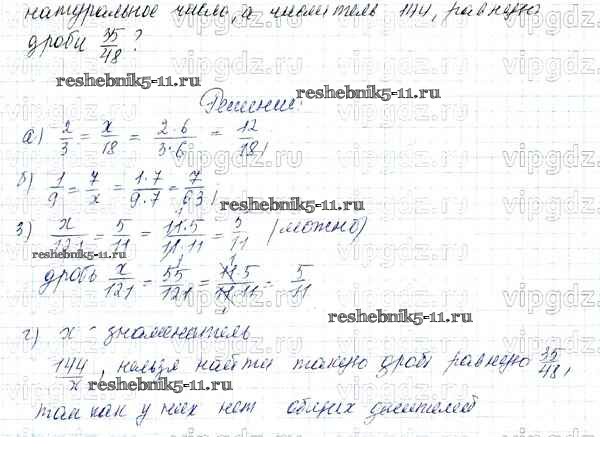 натуральное число, а числитель 144, равную
дроби 35/48?
reshebnik5-11.ru
reshebnik5-11.ru
Решение:
vipgdz.ru
а) 2/3 = x/18 = 2·6/3·6 = 12/18,
vipgdz.ru
б) 1/9 = 7/x = 1·7/9·7 = 7/63,
reshebnik5-11.ru
з) x/121 = 5/11 = 11·5/11·11 = 5/11 (можно)
reshebnik5-11.ru
дробь x/121 = 55/121 = 11·5/11·11 = 5/11
vipgdz.ru
reshebnik5-11.ru
г) x - знаменатель
144/x, нельзя найти такую дробь равную 35/48,
reshebnik5-11.ru
так как у них нет общих делителей